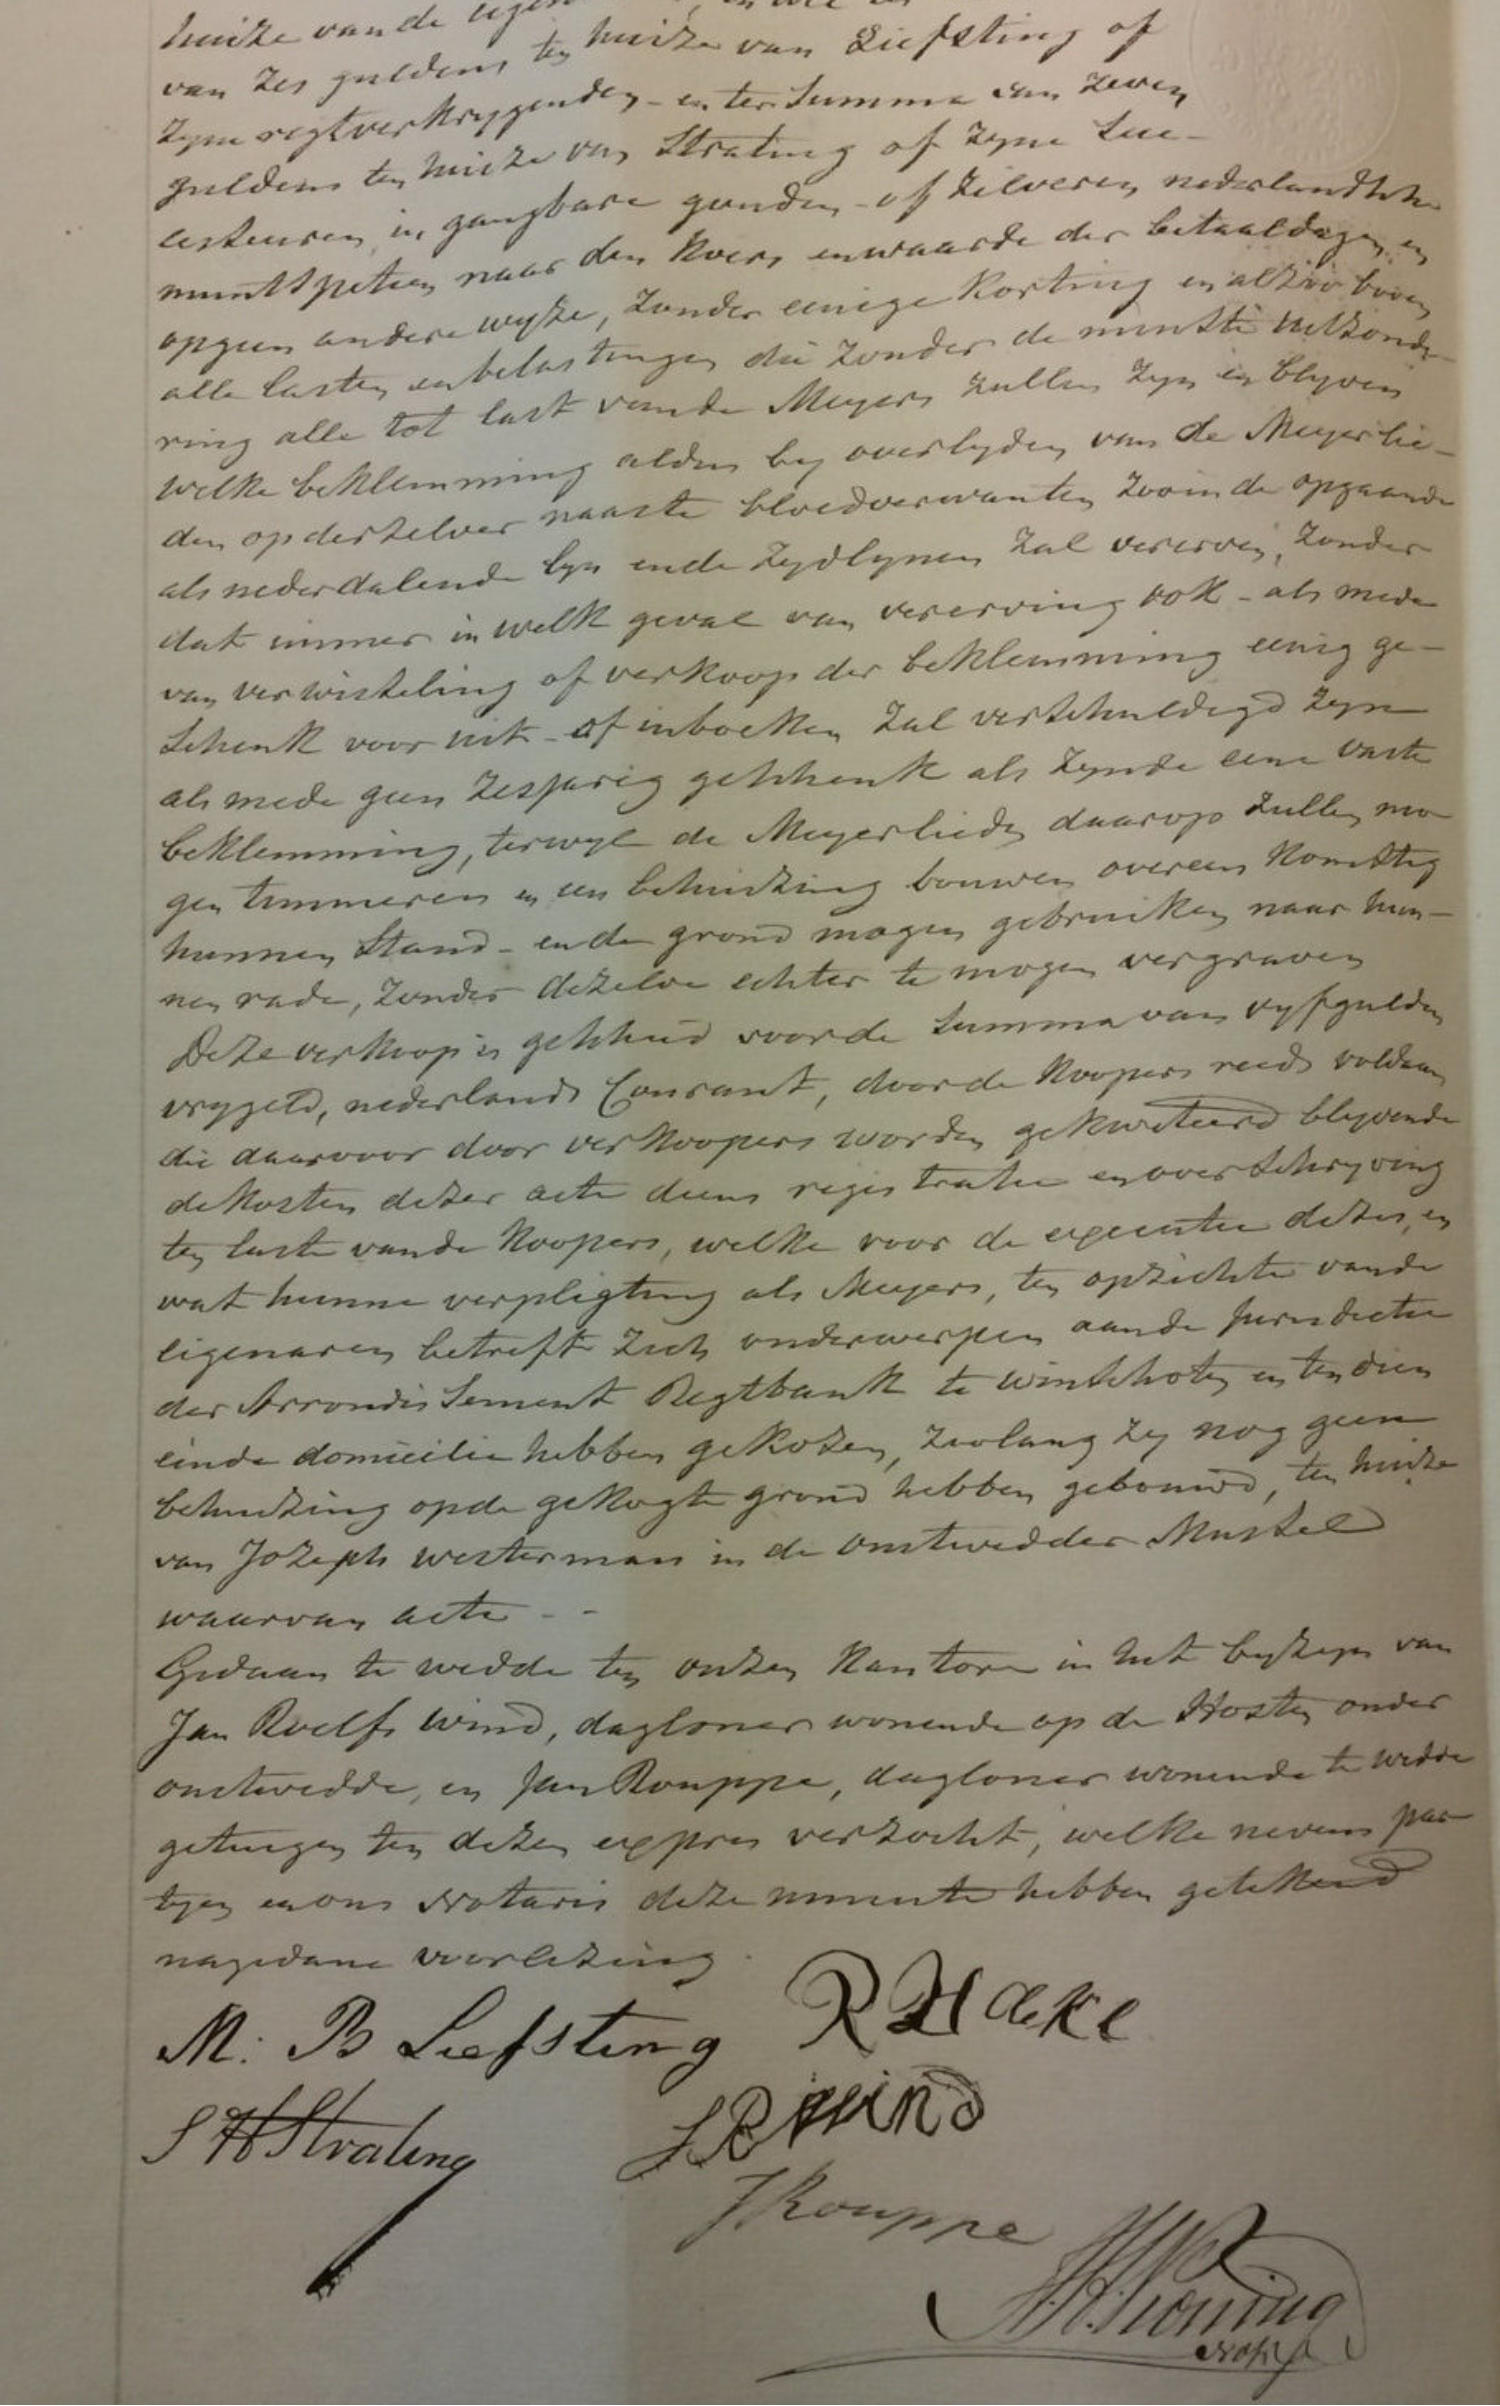 huize van de eigen
van zes guldens ten huize van Liefsting of
zyne regtverkrygenden - en ter Summa van zeven
guldens ten huize van Strating of zyne Suc-
cesteuren in gangbare gouden - of zilveren nederlandsche
muntspetien naar den Koers en waarde der betaaldagen en
op geen andere wyze, zonder eenige Korting en altoos boven
alle lasten en belastingen die zonder de minste uitzonde-
ring alle tot last van de Meyers zullen zyn en blyven
welke beklemming alden by overlyden van de Meyerlie-
den op derzelver naaste bloedverwanten zoo in de opgaande
als nederdalende lyn en de zydlynen zal vererven, zonder
dat immer in welk geval van vererving ook - als mede
van verwisteling of verkoop der beklemming eenig ge-
Schenk voor uit - of inboeken zal verschuldigd zyn
als mede geen zesjarig geschenk als zynde eene vaste
beklemming, terwyl de Meyerlieden daarop zullen mo-
gen timmeren en een behuizing bouwen overeen Komstig
hunnen Stand - en de grond mogen gebruiken naar hun-
nen rade, zonder dezelve echter te mogen vergraven
Deze verkoop is geschied voor de Summa van vyf gulden
vrygeld, nederlands Courant, door de Koopers reeds voldaan
die daarvoor door verkoopers worden gekwiteerd blyvende
de kosten dezer acte deens registratie en overschryving
ten laste van de Koopers, welke voor de executie dezes, en
wat hunne verpligting als Meyers, ten opzichte van de
eigenaren betreft zich onderwerpen aan de Jurisdictie
der Arrondissement Regtbank te Winschoten en ten dien
einde domicilie hebben gekozen, zoolang zy nog geen
behuizing op de gekogte grond hebben gebouwd, ten huize
van Jozeph Westerman in de Onstwedder Mussel
waarvan acte - -
Gedaan te Wedde ten onzen Kantore in het byzyn van
Jan Roelfs Wind, dagloner wonende op de Hosten onder
Onstwedde, en Jan Rouppe, dagloner wonende te Wedde
getuigen ten dezen expres verzocht, welke nevens par-
tyen en ons Notaris deze minute hebben getekend
na gedane voorlezing.
M: B Liefsting R H deke
S H Strating J R Wind
J Rouppe
Koning
Nots